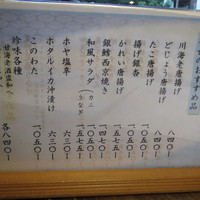 のおすすめ品
川海老唐揚げ 八四〇ー
どじょう唐揚げ 八四〇ー
たこ唐揚げ 八四〇ー
揚げ銀杏
かれい唐揚げ 一五七五ー
銀鱈西京焼き 一〇五〇ー
和風サラダ(カニ うなぎ) 一五七五ー
ホヤ塩辛 六三〇ー
ホタルイカ沖漬け 六三〇ー
このわた 一〇五〇ー
珍味各種 各八四〇ー